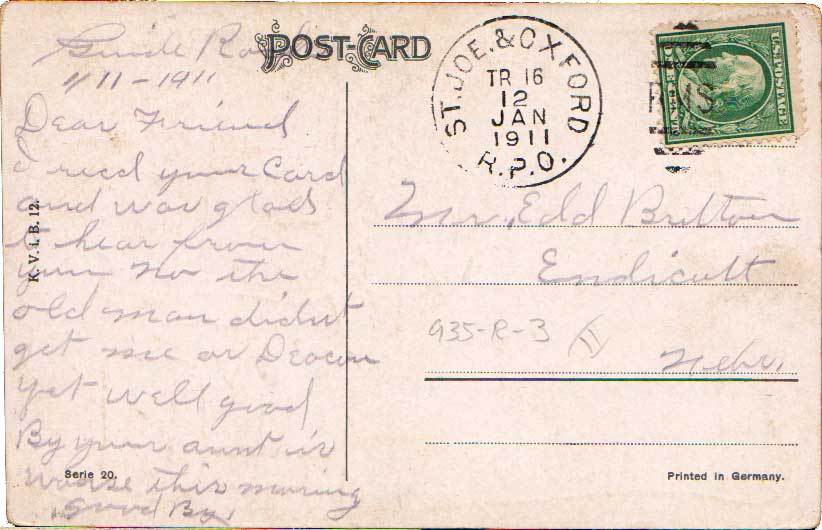 Guide Rock
1/11-1911
POST-CARD
Dear Friend
I recd your Card
and was glad
to hear from
you No the
old man didnt
get me or Deacon
yet well good
By your aunt is
worse this morning
good By,
K. V. i. B. 12.
Serie 20.
ST. JOE. & OXFORD
TR 16
12
JAN
1911
R.P.O.
RMS
U.S. POSTAGE
Mr, Edd Britton
Endicott
935-R-3
Nebr.
Printed in Germany.